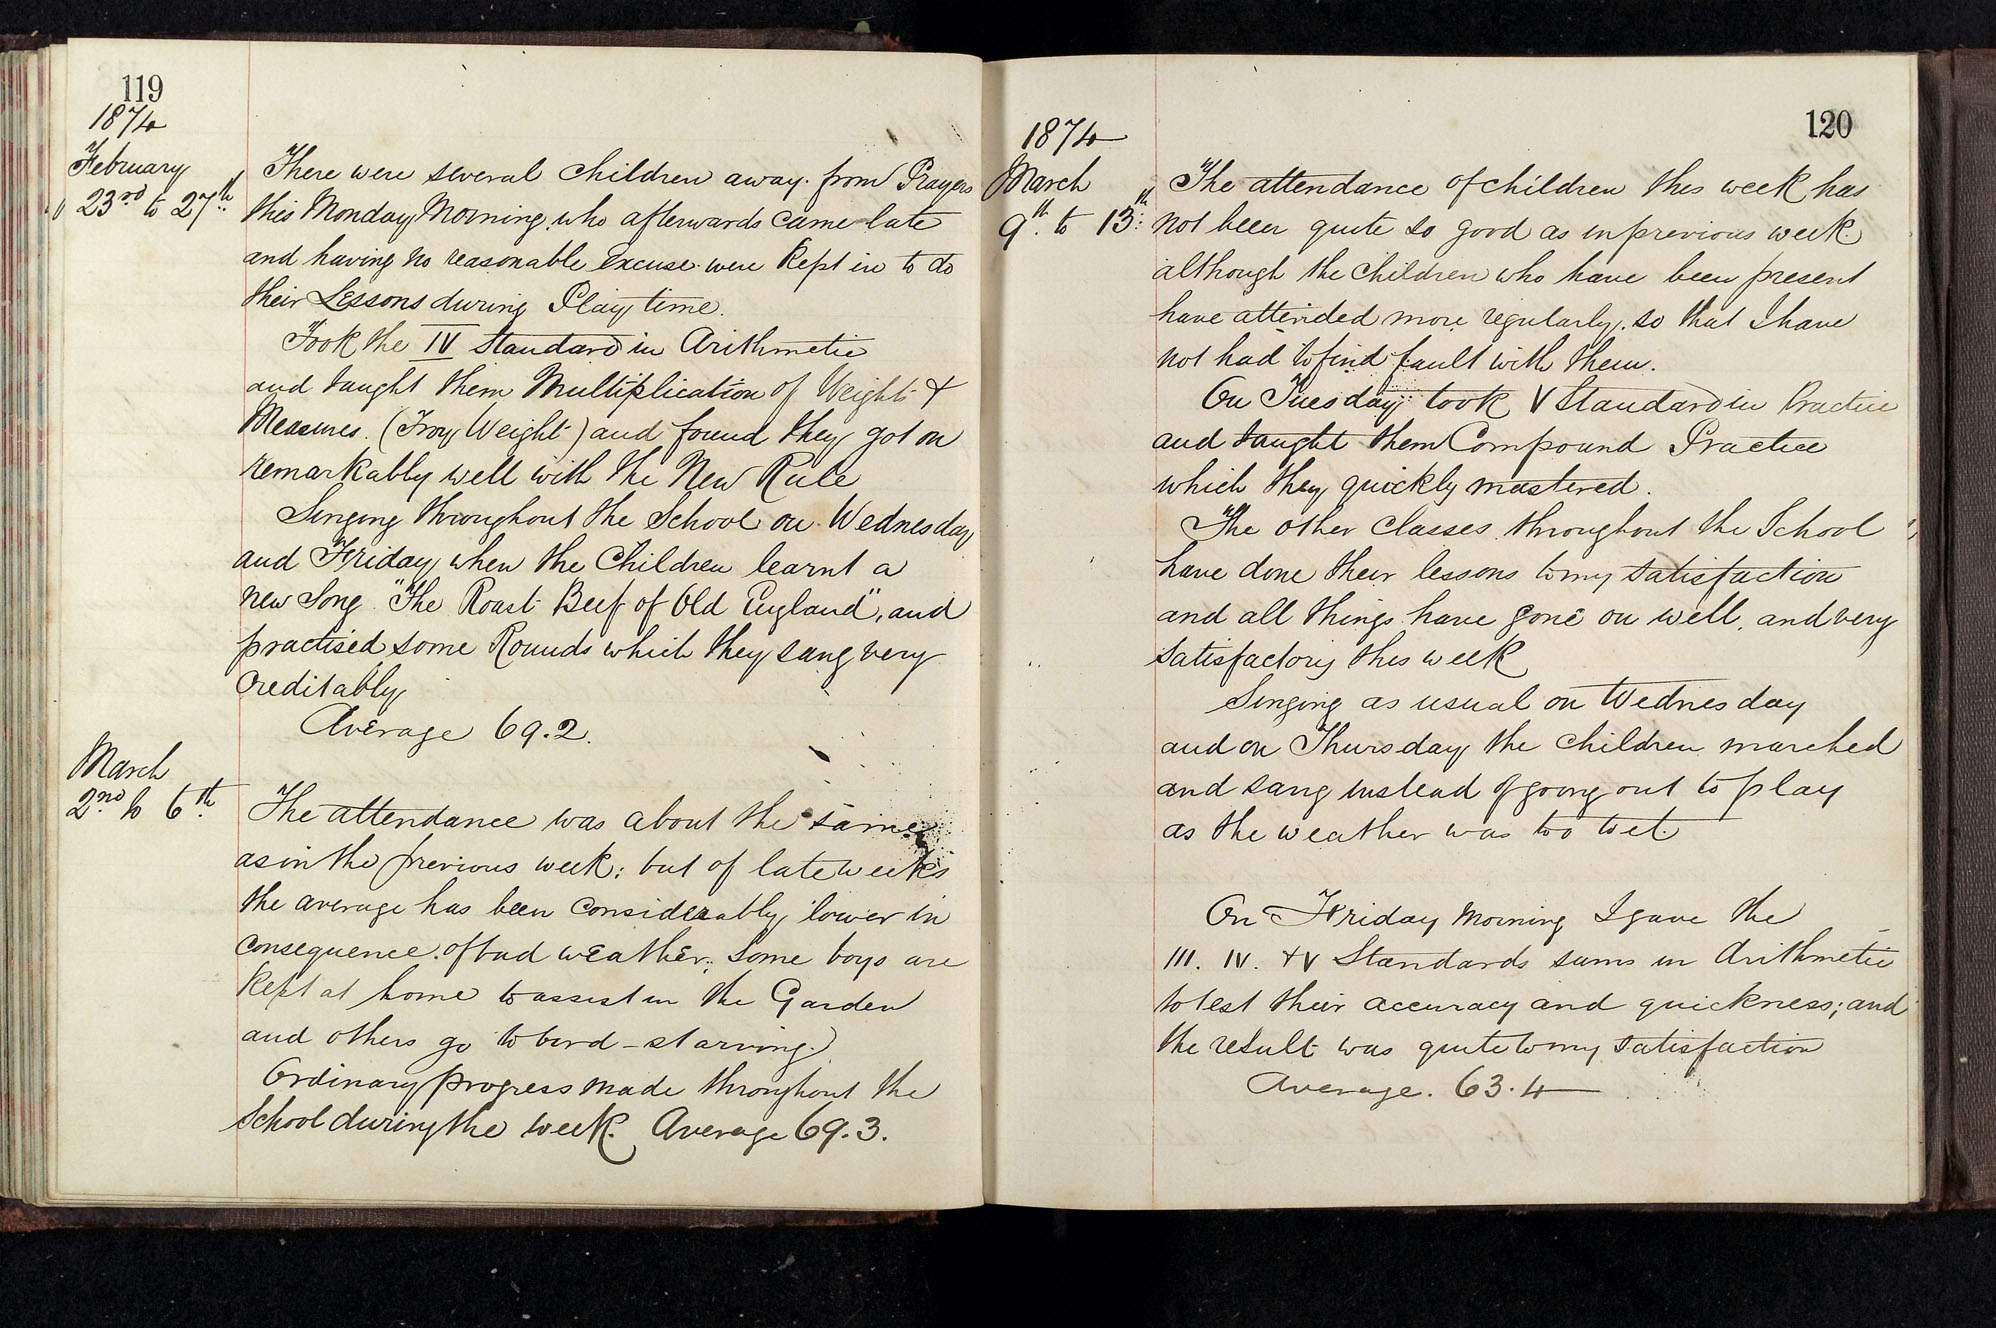 119
1874
February
23rd to 27th
There were several children away from Prayers
this Monday Morning, who afterwards came late
and having no reasonable excuse were kept in to do
their Lessons during Play time.
Took the IV Standard in Arithmetic
and taught them Multiplication of Weights &
Measures. (Troy Weight) and found they got on
remarkably well with the New Rule
Singing throughout the School on Wednesday
and Friday, when the Children learnt a
new Song "The Roast Beef of Old England", and
practised some Rounds which they sang very
creditably
Average 69.2.
March
2nd to 6th
The attendance was about the same
as in the previous week: but of late weeks
the average has been considerably lower in
consequence of bad weather; Some boys are
kept at home to assist in the Garden
and others go to bird-starving.
Ordinary progress made throughout the
School during the week. Average 69.3.
120
1874
March
9th to 13th
The attendance of children this week has
not been quite so good as in previous week
although the children who have been present
have attended more regularly, so that I have
not had to find fault with them.
On Tuesday took V Standard in Practice
and taught them Compound Practice
which they quickly mastered.
The other classes throughout the School
have done their lessons to my satisfaction
and all things have gone on well, and very
satisfactory this week
Singing as usual on Wednesday
and on Thursday the children marched
and sang instead of going out to play
as the weather was too wet.
On Friday morning I gave the
III. IV. & V Standards sums in Arithmetic
to test their accuracy and quickness; and
the result was quite to my satisfaction
Average. 63.4